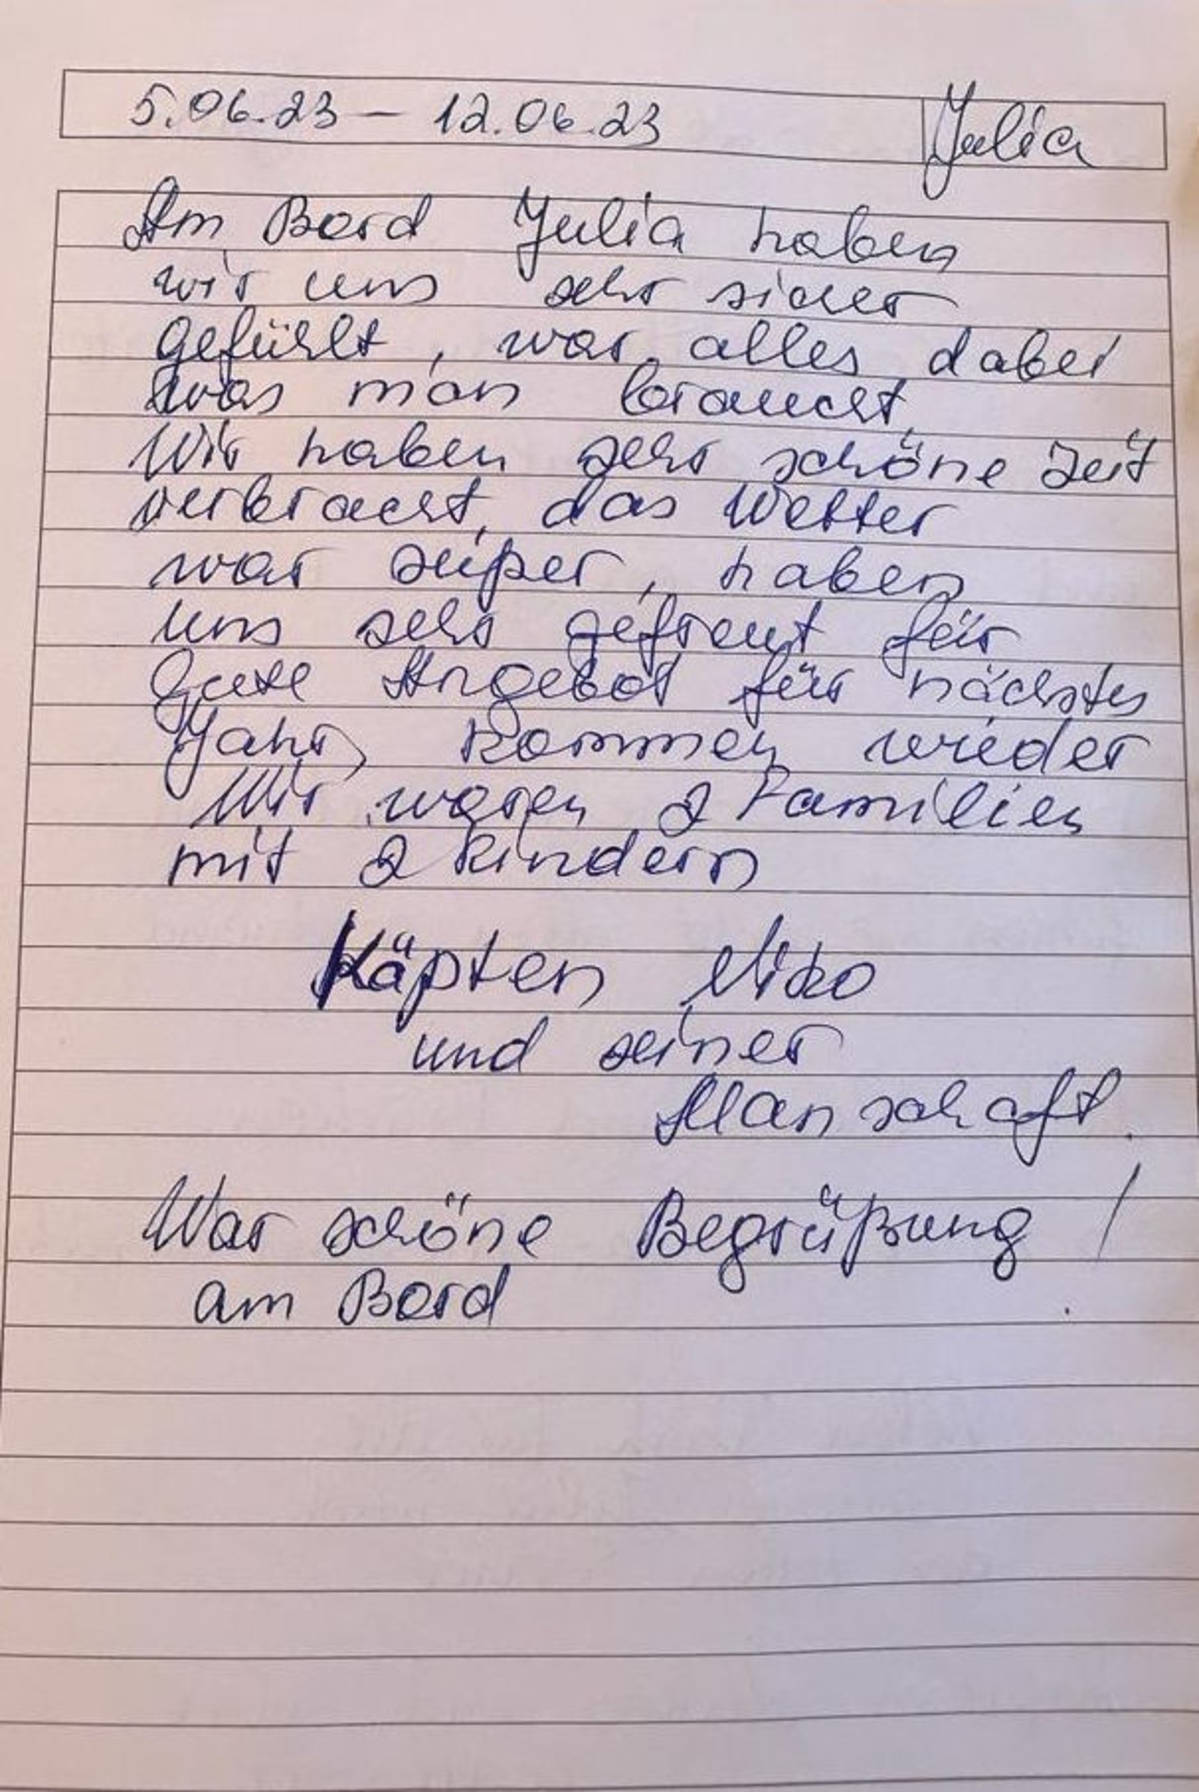 5.06.23 – 12.06.23 Julia
Am Bord Julia haben
wir uns sehr sicher
gefühlt, war alles dabei
was man braucht.
Wir haben sehr schöne Zeit
verbracht, das Wetter
war super, haben
uns sehr gefreut für
gute Angebot für nächstes
Jahr, kommen wieder
Wir waren 2 Familien
mit 2 Kindern
Käpten Niko
und seiner
Manschaft.
War schöne Begrüßung!
am Bord